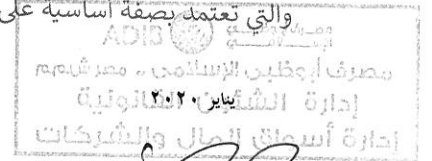 والتي تعتمد بصفة أساسية على
ADIB
مصرف أبوظبي الإسلامي - مصر ش.م.م
يناير ٢٠٢٠
إدارة الشئون القانونية
إدارة أسواق المال والشركات